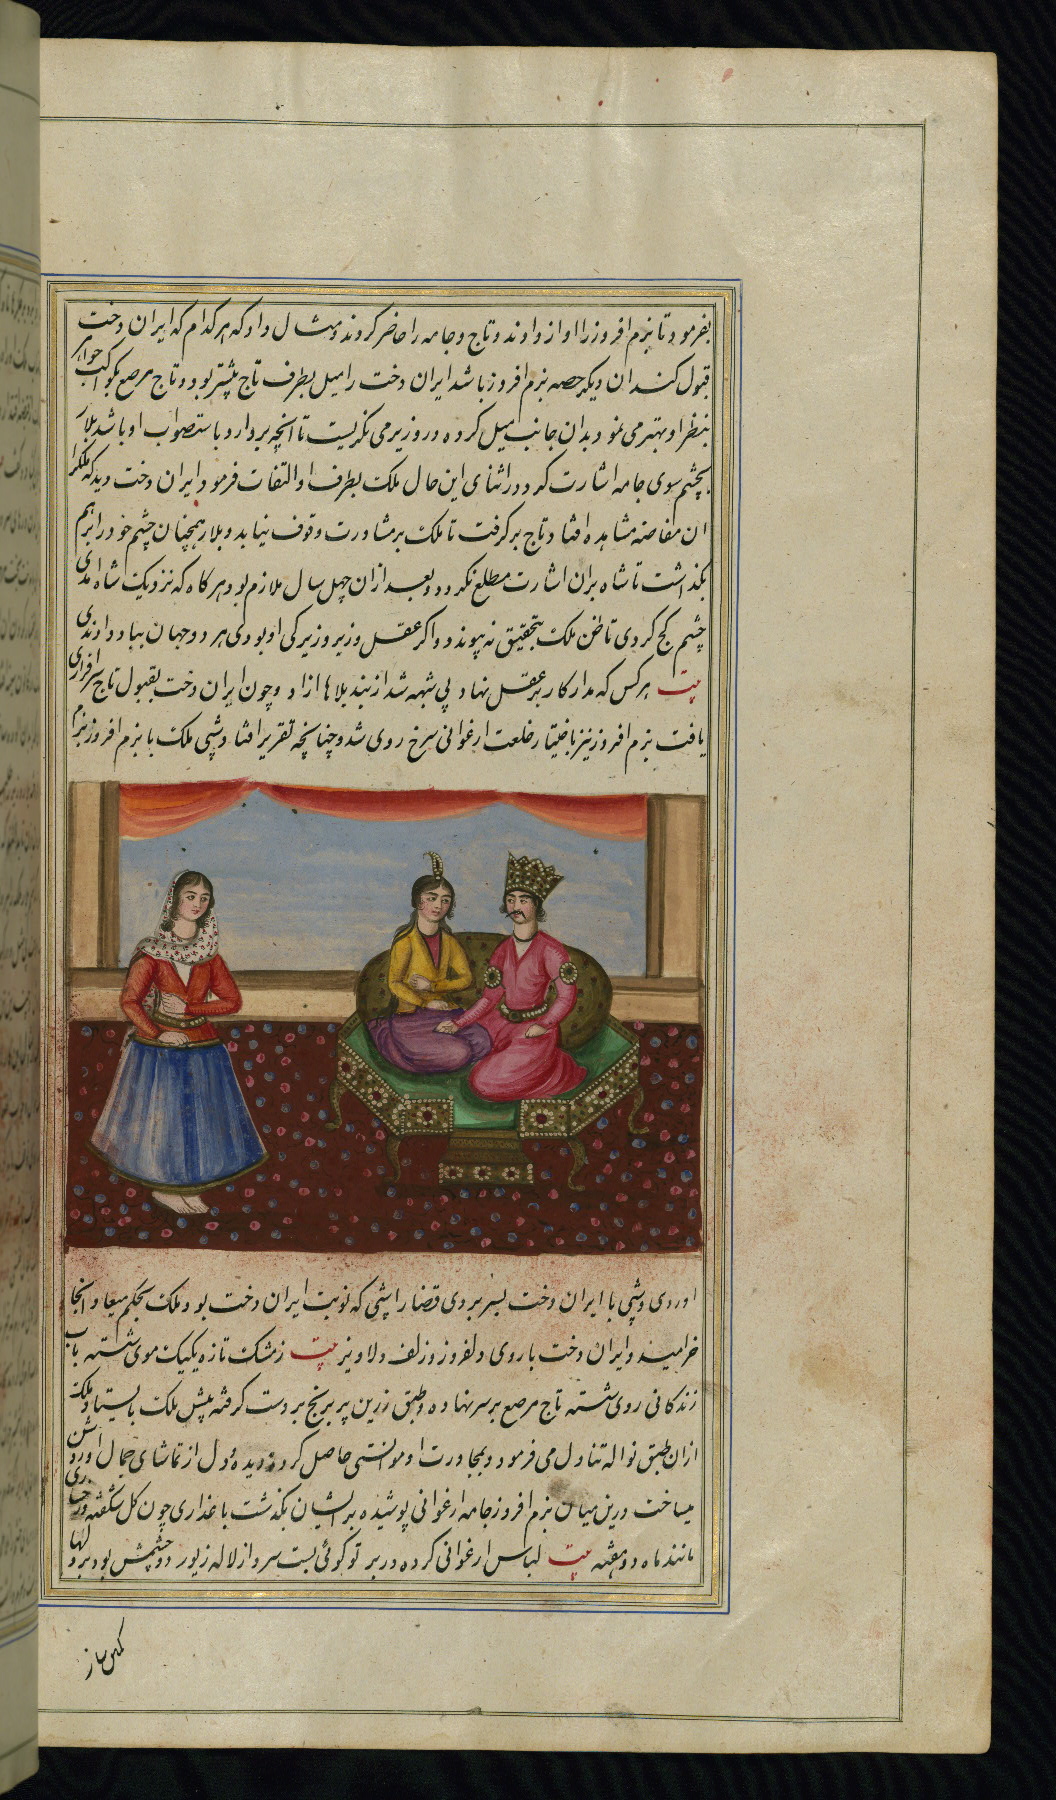 بفرمود تا بزم افروز را اواز دادند و تاج و جامه را حاضر کردند و مثال داد که هر کدام که ایران دخت
قبول کند ان دیگر حصه بزم افروز باشد ایران دخت را میل بطرف تاج بیشتر بود و تاج مرصع بکواکب جواهر
بنظر او بهتر می نمود بدان جانب میل کرده در وزیر می نکریست تا انچه بردارد باستصواب او باشد بلار
بچشم سوی جامه اشارت کرد در اثنای این حال ملک بطرف او التفات فرمود ایران دخت دید که ملک را
ان مفاصنه مشاهده افتاد تاج برکرفت تا ملک بر مشاورت وقوف نیابد و بلار همچنان چشم خود را برهم
بکذاشت تا شاه بران اشارت مطلع نکردد و بعد ازان چهل سال ملازم بود هرکاه که نزدیک شاه امدی
چشم کج کردی تا ظن ملک بتحقیق نه پیوندد و اکر عقل وزیر و زیرکی او بودی هر دو جهان بباد دادندی
بیت هر کس که مدار کار بر عقل نهاد بی شبهه شد از بند بلاها ازاد و چون ایران دخت بقبول تاج سرافرازی
یافت بزم افروز نیز باختیار خلعت ارغوانی سرخ روی شد و چنانچه تقریر افتاد شبی ملک با بزم افروز بزم
اوردی و شبی با ایران دخت بسر بردی قضا را شبی که نوبت ایران دخت بود ملک بحکم میعاد انجا
خرامید و ایران دخت با روی دلفروز و زلف دلاویز بیت ز مشک تازه یکیک موی شسته باب
زندکانی روی شسته تاج مرصع بر سر نهاده و طبق زرین پر برنج بر دست کرفته پیش ملک بایستاد و ملک
ازان طبق نواله تناول می فرمود و بمجاورت او موانستی حاصل کرد و دیده دل از تماشای جمال او روشن
میساخت درین میان بزم افروز جامه ارغوانی پوشیده بر ایشان بکذشت با عذاری چون کل شکفته و رخساری
مانند ماه دو هفته بیت لباس ارغوانی کرده در بر تو کوئی بست سرو از لاله زیور دو چشمش بود بر دلها
کمین ساز